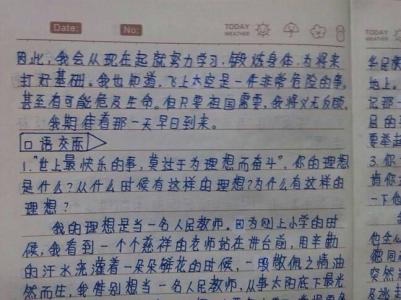 Date: No: TODAY WEATHER
因此,我会从现在起就努力学习,锻炼身体,为将来
打好基础。我也知道,飞上太空是一件非常危险的事,
甚至有可能危及生命。但只要祖国需要,我将义无反顾。
我期待着那一天早日到来。
口语交际
1."世上最快乐的事,莫过于为理想而奋斗"。你的理想
是什么?从什么时候有这样的理想?为什么有这样的
理想?
我的理想是当一名人民教师。因为刚上小学的时
候,我看到一个个慈祥的老师站在讲台前,用辛勤
的汗水浇灌着一朵朵鲜花的时候,一股敬佩之情油
然而生,我特别想当一名人民教师,从事太阳底下最光
TODAY
WEATHER
地上。
记那一
3.你
肯你
一下
突然